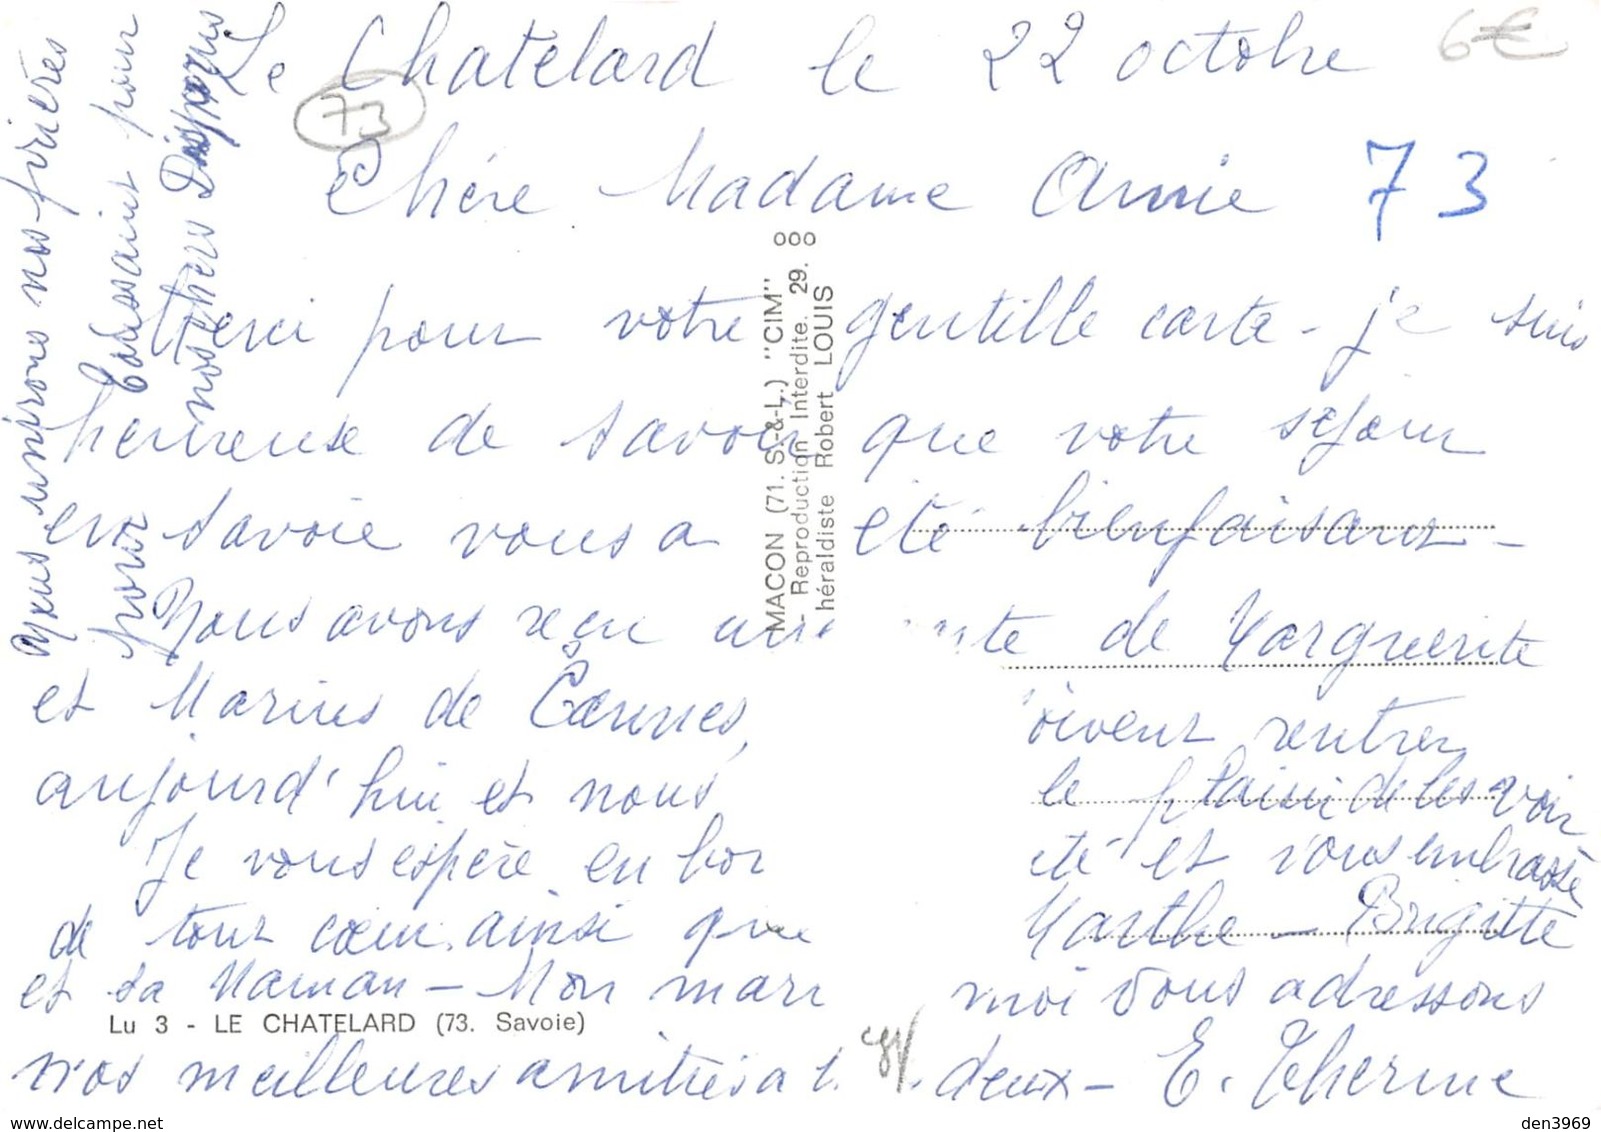 Le Chatelard le 22 octobre
6€
73
Chére Madame Amie 73
Merci pour votre gentille carte - je suis
heureuse de savoir que votre séjour
en Savoie vous a été bienfaisant -
Nous avons reçu une nte de Marguerite
et Marius de Cannes, oivent rentrer
aujourd'hui et nous le plaisir de les voir
Je vous espère en bon té et vous embrasse
de tout cœur ainsi que Marthe - Brigitte
et sa Maman - Mon mari moi vous adressons
nos meilleures amitiés à deux - E. Therme
Nous unirons nos prières
pour Toussaint pour
nos chers Disparus
MACON (71. S.-&-L.) "CIM"
- Reproduction Interdite. 29.
héraldiste Robert LOUIS
000
Lu 3 - LE CHATELARD (73. Savoie)
www.delcampe.net
den3969